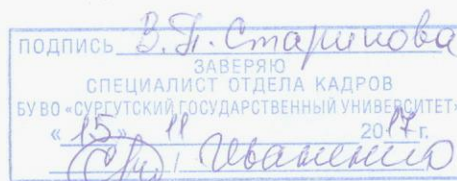 ПОДПИСЬ В.П. Старикова
ЗАВЕРЯЮ
СПЕЦИАЛИСТ ОТДЕЛА КАДРОВ
БУ ВО «СУРГУТСКИЙ ГОСУДАРСТВЕННЫЙ УНИВЕРСИТЕТ»
«15» 11 2017 г.
Иваненко